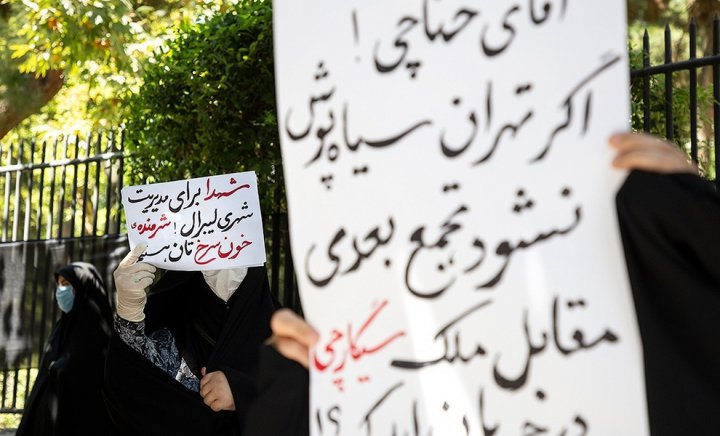 شهدا برای مدیریت
شهری لیبرال ! شرمنده ی
خون سرخ تان
آقای حناچی !
اگر تهران سیاه پوش
نشود تجمع بعدی
مقابل ملک سیگارچی